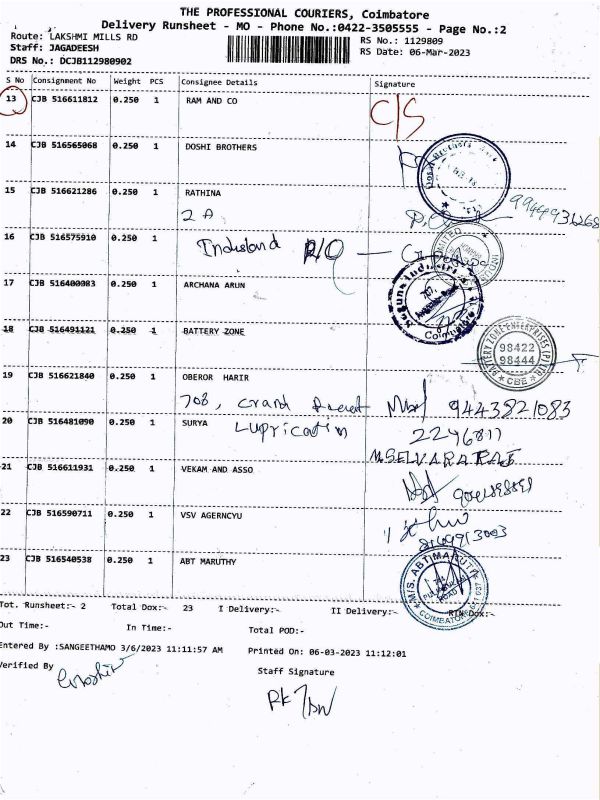 THE PROFESSIONAL COURIERS, Coimbatore
Delivery Runsheet - MO - Phone No.:0422-3505555 - Page No.:2
Route: LAKSHMI MILLS RD
RS No.: 1129809
Staff: JAGADEESH
RS Date: 06-Mar-2023
DRS No.: DCJB112980902
S No Consignment No Weight PCS Consignee Details Signature
13 CJB 516611812 0.250 1 RAM AND CO C/S
14 CJB 516565068 0.250 1 DOSHI BROTHERS
15 CJB 516621286 0.250 1 RATHINA
2 A
16 CJB 516575910 0.250 1
17 CJB 516400983 0.250 1 ARCHANA ARUN
Coimbatore
18 CJB 516491121 0.250 1 BATTERY ZONE
BATTERY ZONE ENTERPRISES (P) LTD
98422
98444
CBE
19 CJB 516621840 0.250 1 OBEROR HARIR
703, Grand 9443821083
20 CJB 516481090 0.250 1 SURYA
Luprication 2246811
M.SELVARARAJ
21 CJB 516611931 0.250 1 VEKAM AND ASSO
22 CJB 516590711 0.250 1 VSV AGERNCYU
23 CJB 516540538 0.250 1 ABT MARUTHY
M/S. ABT MARUTI
COIMBATORE
Tot. Runsheet:- 2 Total Dox:- 23 I Delivery:- II Delivery:- RTN Dox:-
Out Time:- In Time:- Total POD:-
Entered By :SANGEETHAMO 3/6/2023 11:11:57 AM Printed On: 06-03-2023 11:12:01
Verified By Staff Signature